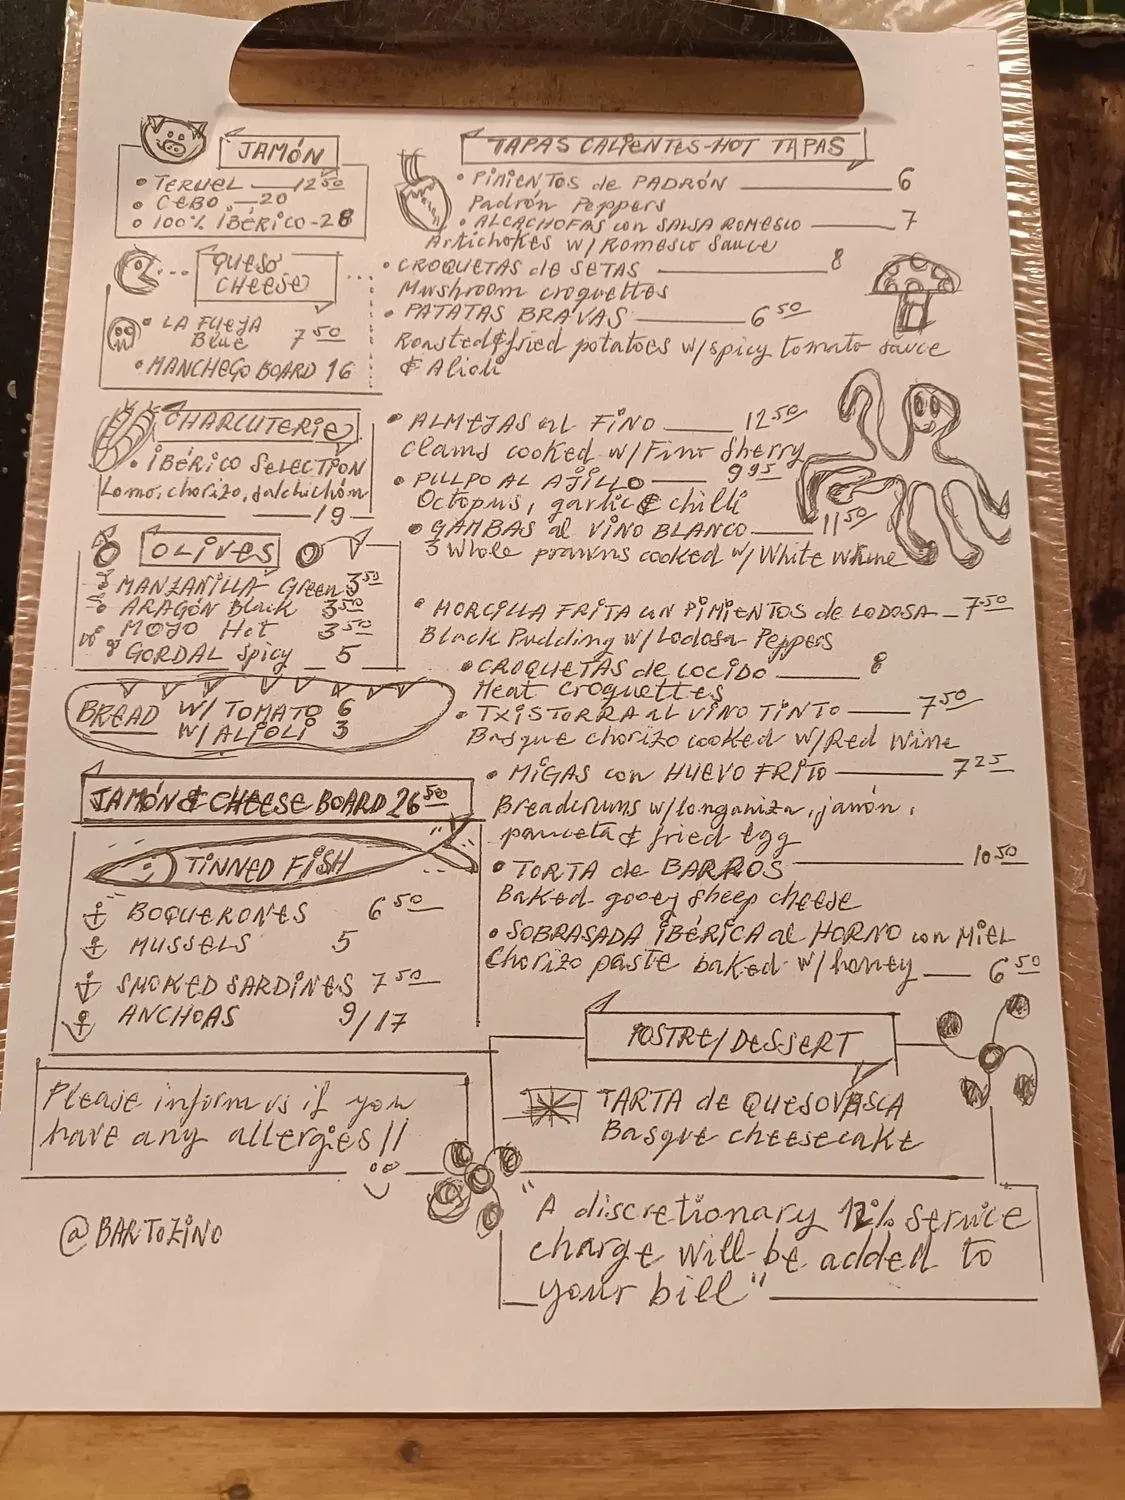 JAMÓN
• TERUEL 12 50
• CEBO 20
• 100% IBÉRICO - 28
QUESO
CHEESE
• LA FUEYA
Blue 7 50
• MANCHEGO BOARD 16
CHARCUTERIE
• IBÉRICO SELECTION
Lomo, chorizo, salchichón
19
OLIVES
MANZANILLA Green 3 50
ARAGÓN Black 3 50
MOJO Hot 3 50
GORDAL Spicy 5
BREAD W/ TOMATO 6
W/ ALIOLI 3
JAMÓN & CHEESE BOARD 26 50
TINNED FISH
BOQUERONES 6 50
MUSSELS 5
SMOKED SARDINES 7 50
ANCHOAS 9/17
Please inform us if you
have any allergies!!
@BARTOZINO
TAPAS CALIENTES-HOT TAPAS
• PIMIENTOS de PADRÓN 6
Padrón Peppers
• ALCACHOFAS con SALSA ROMESCO 7
Artichokes w/ Romesco Sauce
• CROQUETAS de SETAS 8
Mushroom croquettes
• PATATAS BRAVAS 6 50
Roasted & fried potatoes w/ spicy tomato sauce
& Alioli
• ALMEJAS al FINO 12 50
Clams cooked w/ Fino Sherry
• PULPO AL AJILLO 9 95
Octopus, garlic & chilli
• GAMBAS al VINO BLANCO 11 50
3 Whole prawns cooked w/ White Whine
• MORCILLA FRITA con PIMIENTOS de LODOSA - 7 50
Black Pudding w/ Lodosa Peppers
• CROQUETAS de COCIDO 8
Meat Croquettes
• TXISTORRA al VINO TINTO 7 50
Basque chorizo cooked w/ Red Wine
• MIGAS con HUEVO FRITO 7 25
Breadcrums w/ longaniza, jamón,
panceta & fried egg
• TORTA de BARROS 10 50
Baked gooey sheep cheese
• SOBRASADA IBÉRICA al HORNO con MIEL
Chorizo paste baked w/ honey 6 50
POSTRE/DESSERT
TARTA de QUESO VASCA
Basque cheesecake
"A discretionary 12% service
charge will be added to
your bill"